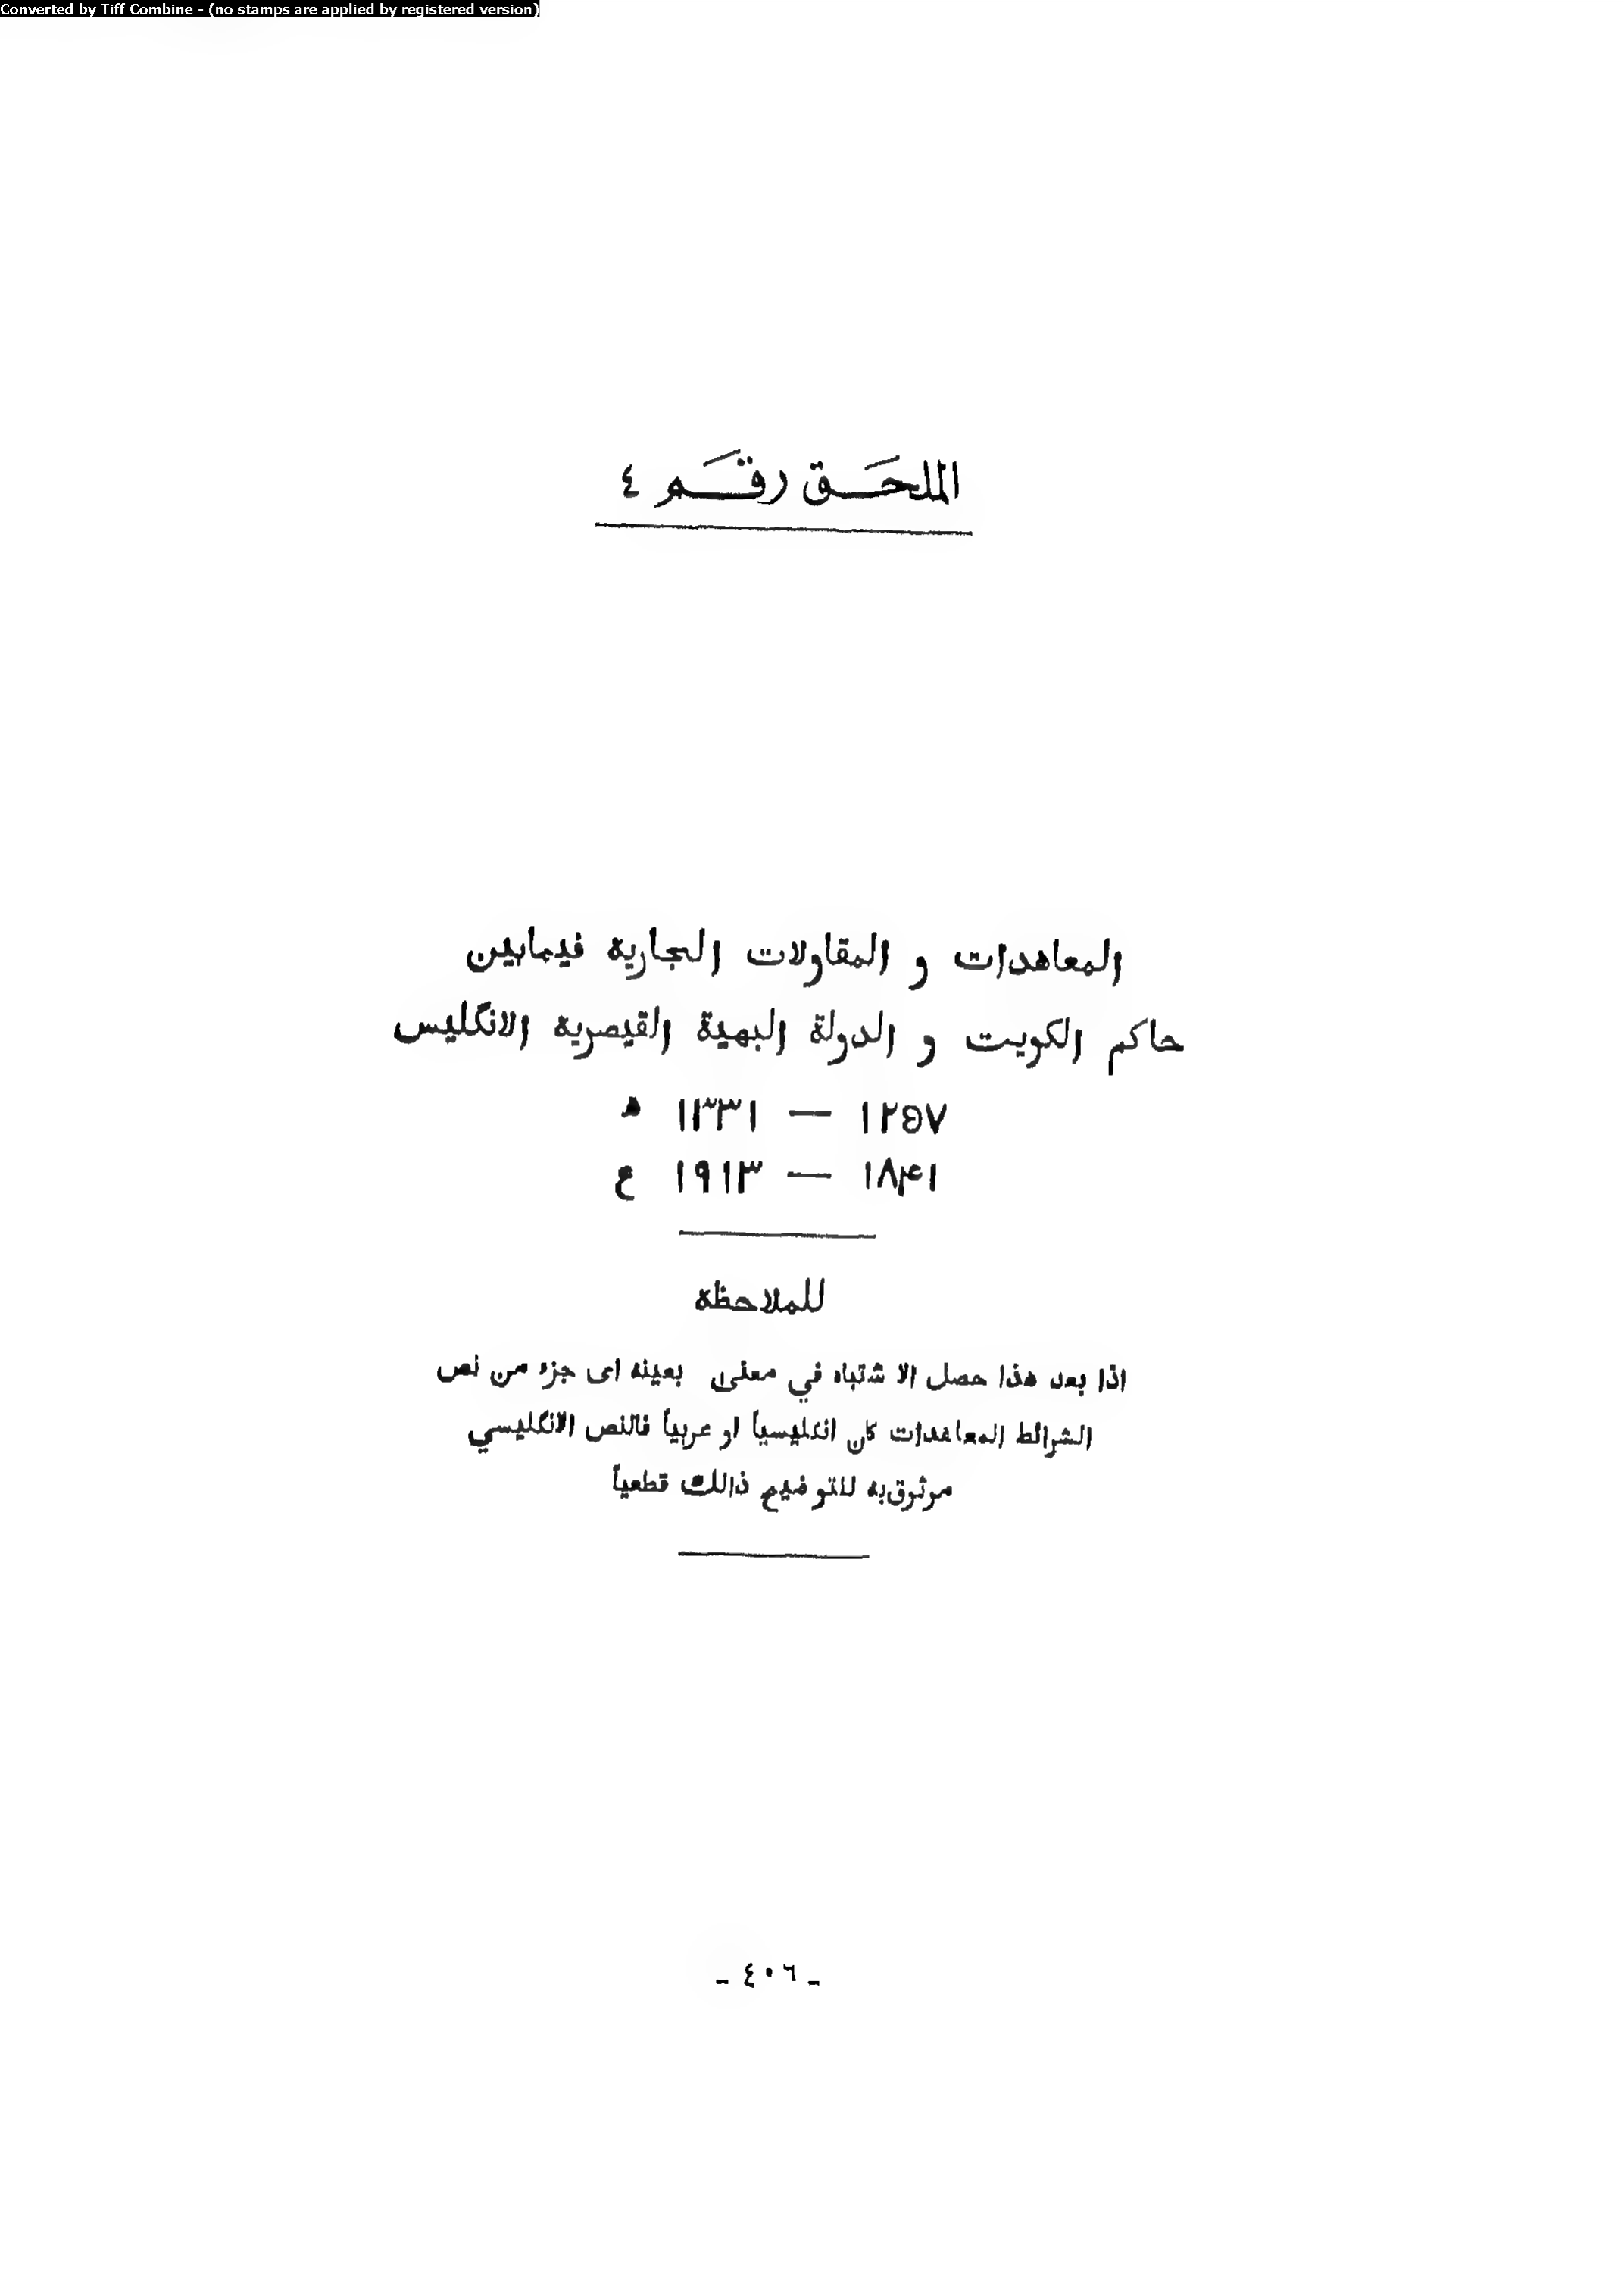 Converted by Tiff Combine - (no stamps are applied by registered version)
الملحَق رقَم ٤
المعاهدات و المقاولات الجاريه فيمابين
حاكم الكويت و الدولة البهية القيصريه الانگليس
١٢٥٧ — ١٣٣١ ه
١٨۴١ — ١٩١٣ ع
للملاحظه
اذا بعد هذا حصل الا شتباه في معنى بعينه اى جزء من نص
الشرائط المعاهدات كان انگليسياً او عربياً فالنص الانگليسي
موثوق به للتوضيح ذالك قطعياً
- ٤٠٦ -